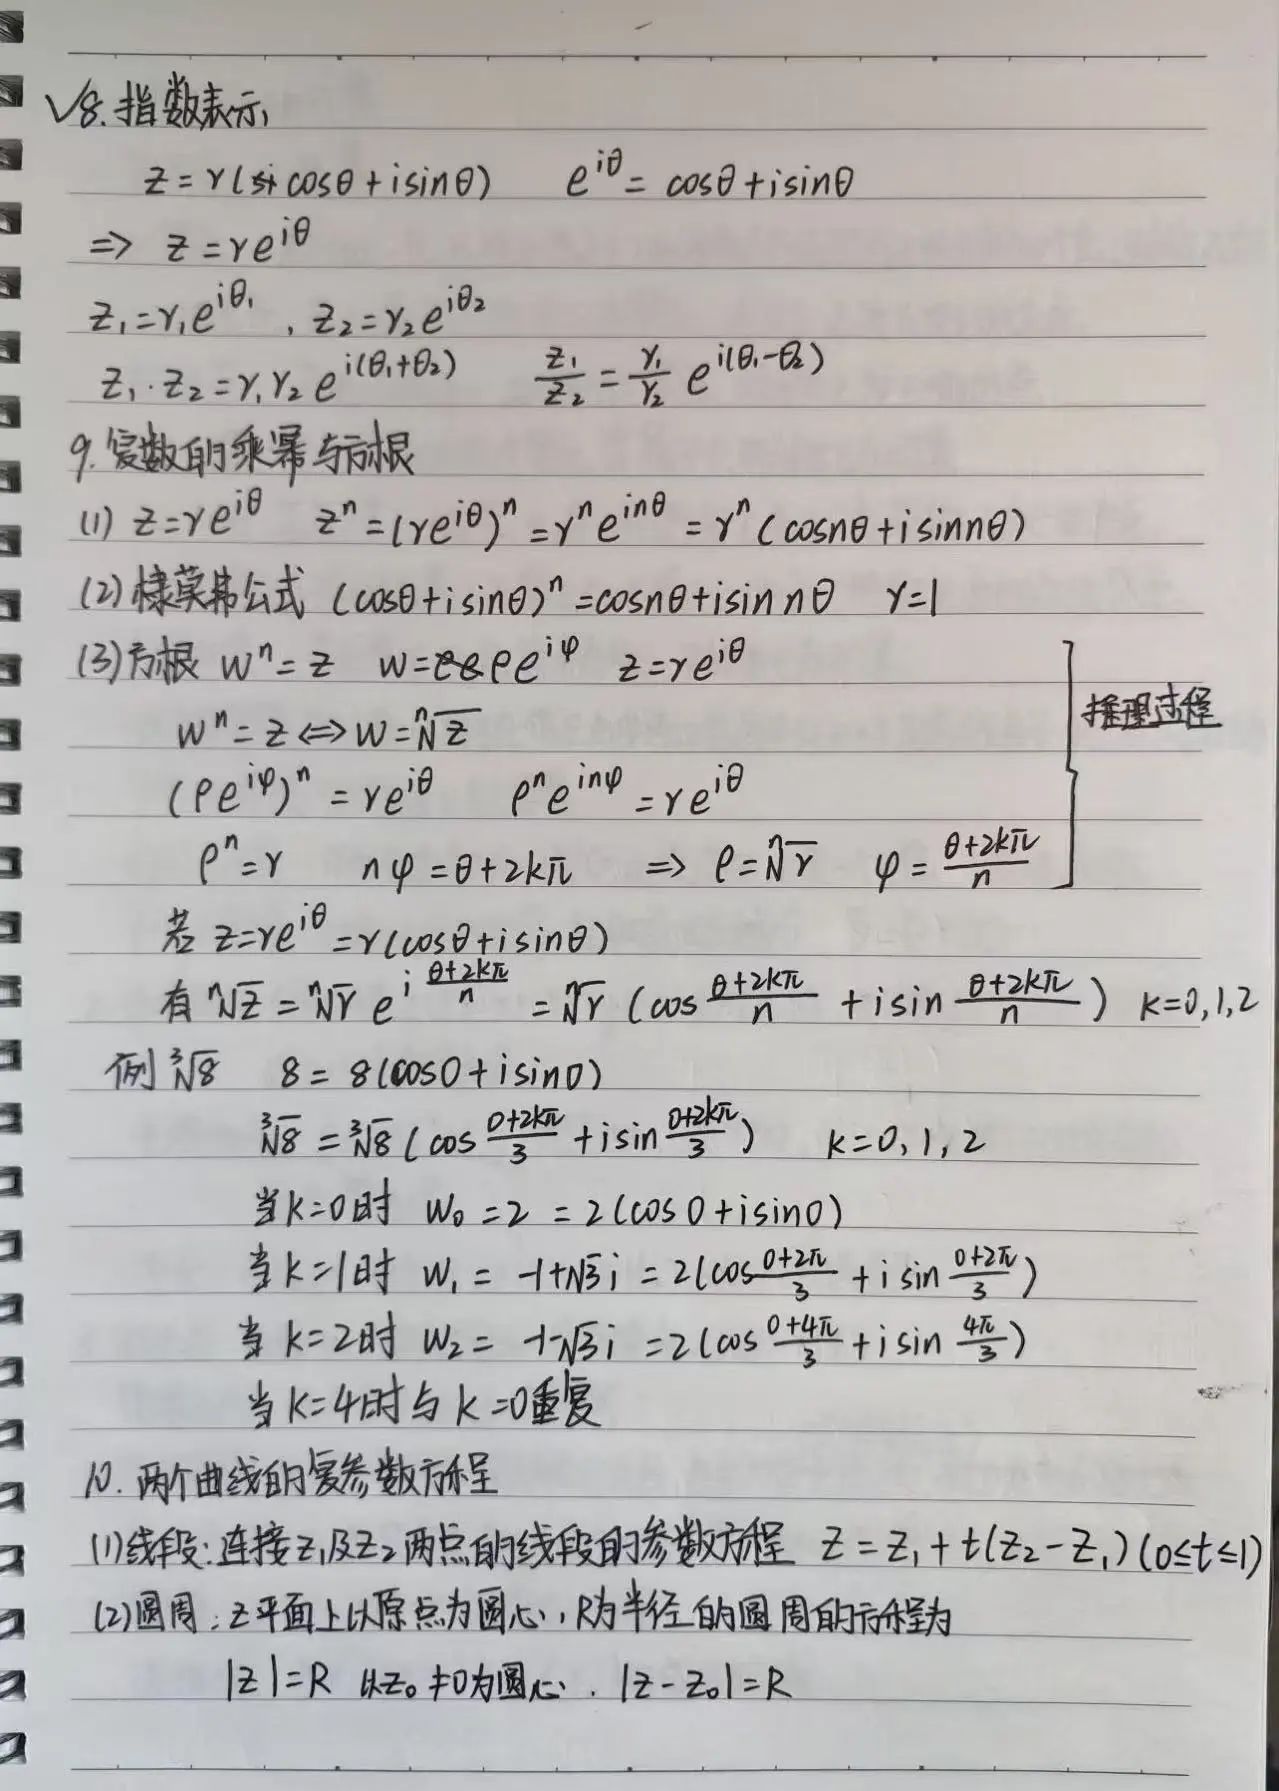 √8.指数表示
z=r(cosθ+isinθ) e^{iθ}=cosθ+isinθ
⇒ z=re^{iθ}
z₁=r₁e^{iθ₁}, z₂=r₂e^{iθ₂}
z₁·z₂=r₁r₂e^{i(θ₁+θ₂)} z₁/z₂=r₁/r₂ e^{i(θ₁-θ₂)}
9.复数的乘幂与方根
(1) z=re^{iθ} zⁿ=(re^{iθ})ⁿ=rⁿe^{inθ}=rⁿ(cosnθ+isinnθ)
(2)棣莫弗公式 (cosθ+isinθ)ⁿ=cosnθ+isin nθ r=1
(3)方根 wⁿ=z w=ρe^{iφ} z=re^{iθ}
推理过程
wⁿ=z⇔w=ⁿ√z
(ρe^{iφ})ⁿ=re^{iθ} ρⁿe^{inφ}=re^{iθ}
ρⁿ=r nφ=θ+2kπ ⇒ ρ=ⁿ√r φ=(θ+2kπ)/n
若 z=re^{iθ}=r(cosθ+isinθ)
有 ⁿ√z=ⁿ√r e^{i(θ+2kπ)/n}=ⁿ√r(cos (θ+2kπ)/n + isin (θ+2kπ)/n) k=0,1,2
例 ³√8 8=8(cos0+isin0)
³√8=³√8(cos (0+2kπ)/3 + isin (0+2kπ)/3) k=0,1,2
当k=0时 w₀=2=2(cos0+isin0)
当k=1时 w₁=-1+√3i=2(cos (0+2π)/3 + isin (0+2π)/3)
当k=2时 w₂=-1-√3i=2(cos (0+4π)/3 + isin 4π/3)
当k=4时与k=0重复
10.两个曲线的复参数方程
(1)线段:连接z₁及z₂两点的线段的参数方程 z=z₁+t(z₂-z₁)(0≤t≤1)
(2)圆周:z平面上以原点为圆心,R为半径的圆周的方程为
|z|=R 以z₀≠0为圆心. |z-z₀|=R